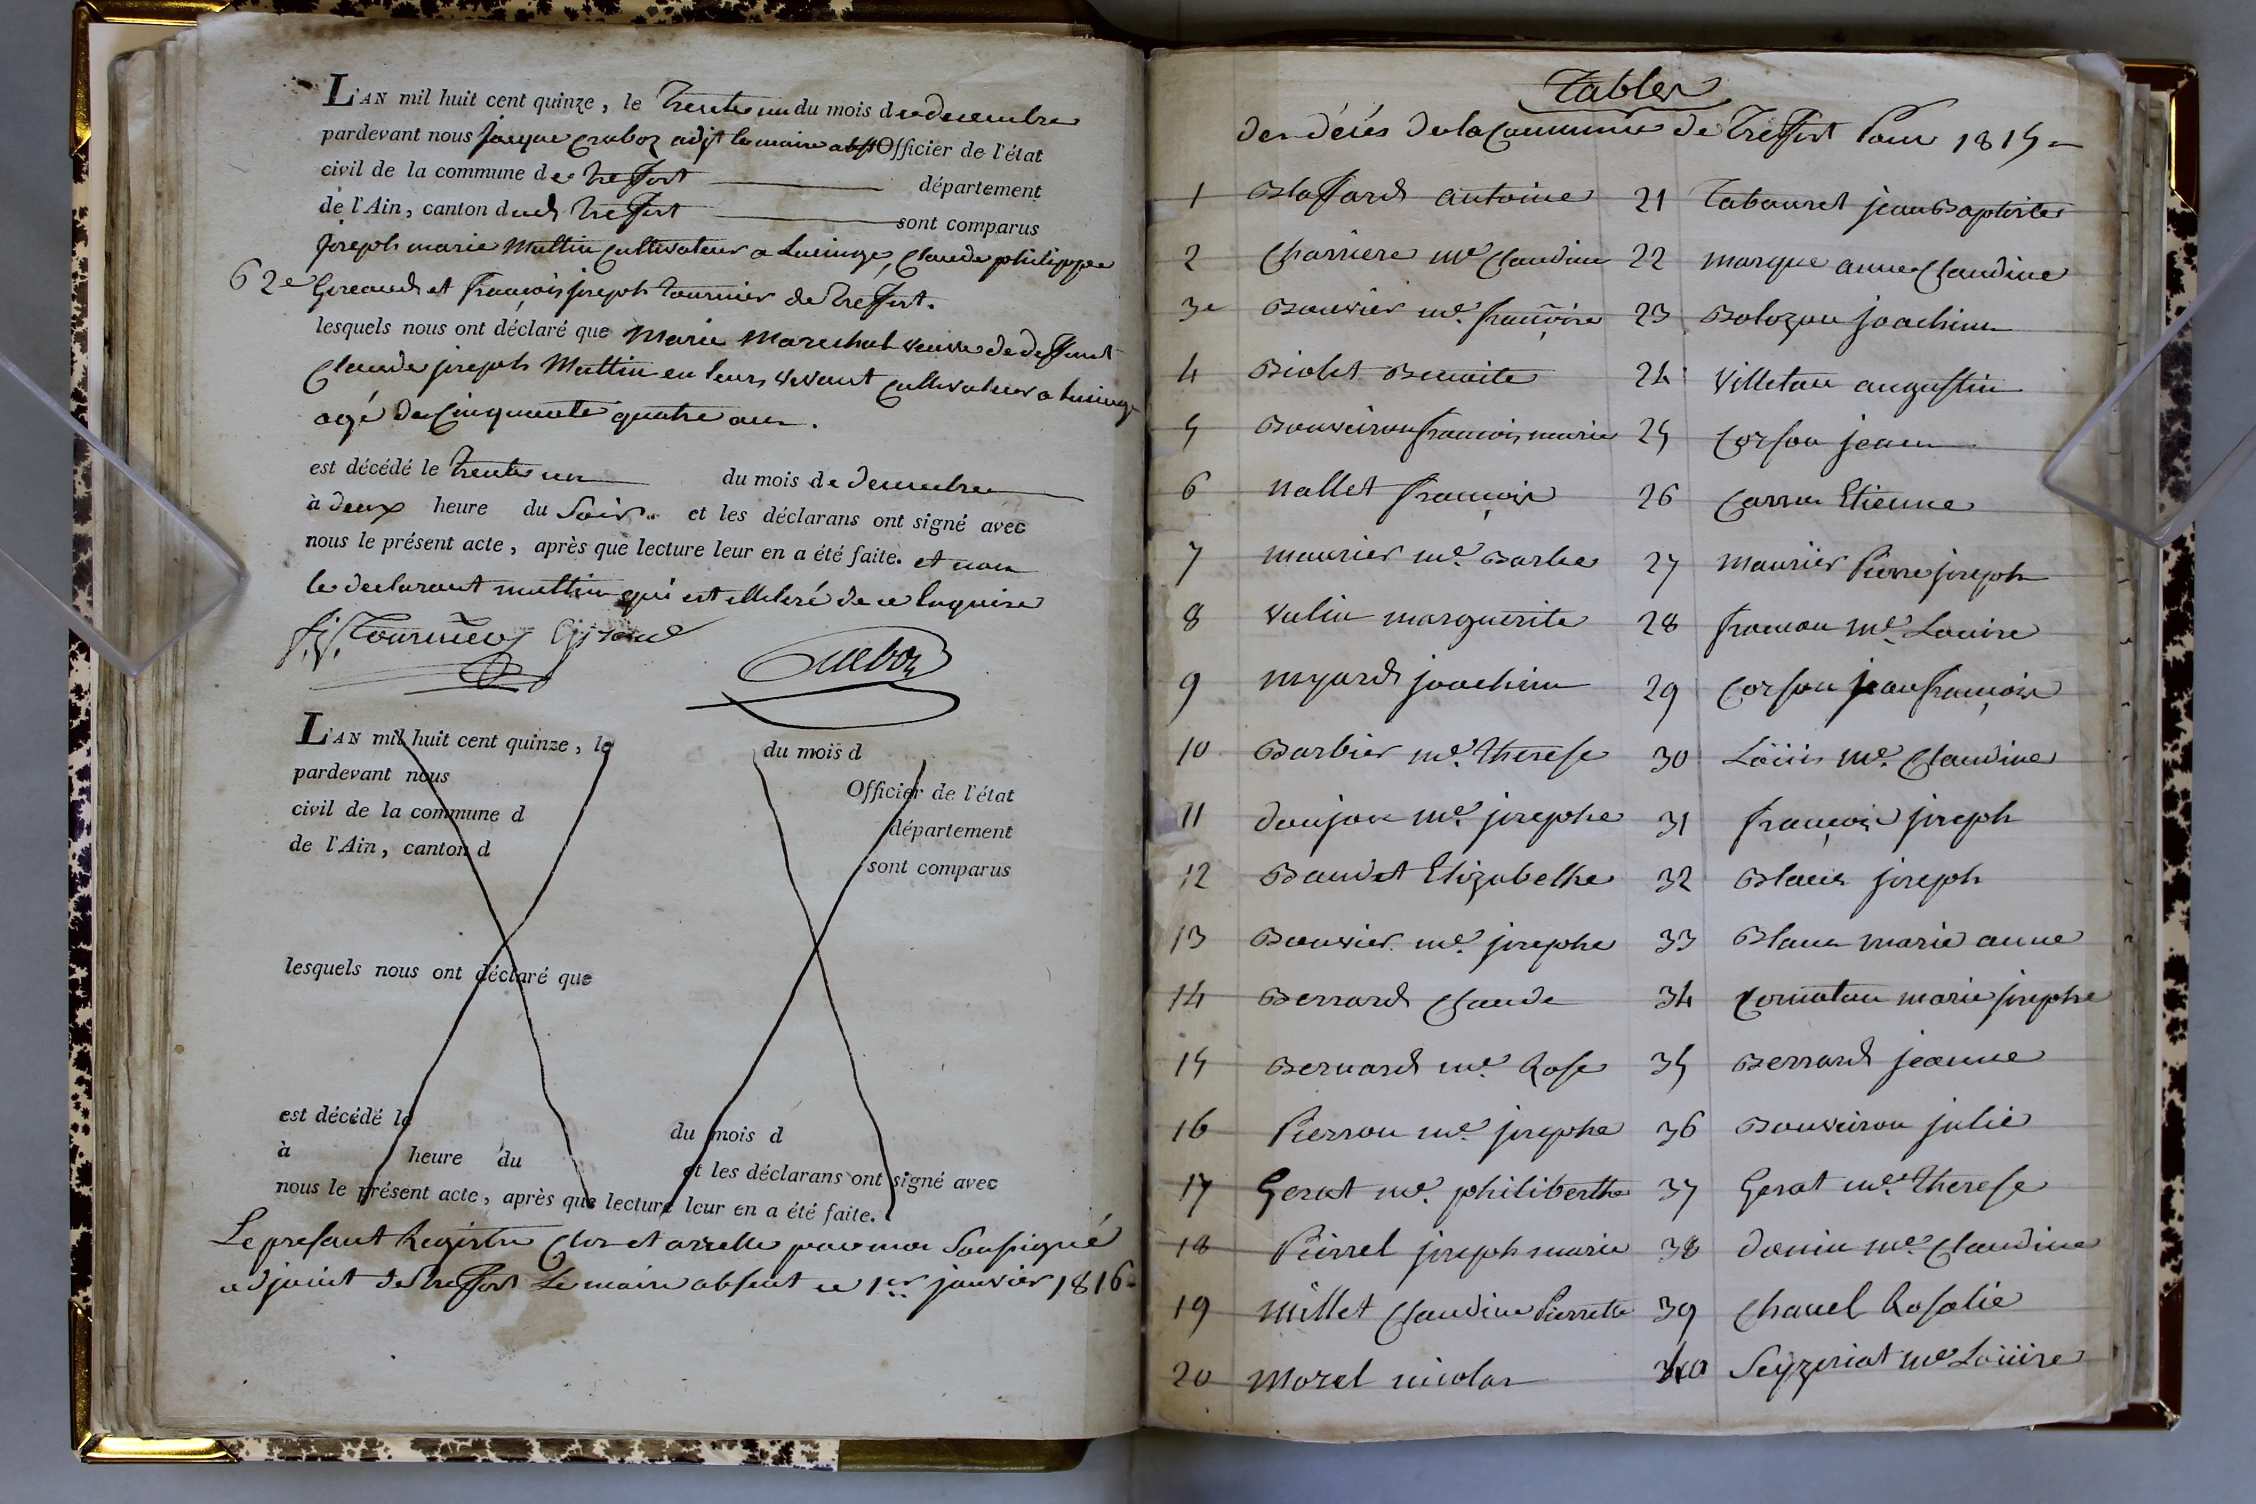 L'AN mil huit cent quinze, le trente un du mois de decembre
pardevant nous jacque Cuaboz adjt le maire abst Officier de l'état
civil de la commune de treffort département
de l'Ain, canton dud treffort sont comparus
joseph marie Muttin Cultivateur a Lucinge, Claude philippe
62e Gireaud et françois joseph tournier de treffort.
lesquels nous ont déclaré que Marie Marechal veuve de deffunt
Claude joseph Muttin en leur vivant cultivateur a lucinge
agé de Cinquante quatre ans.
est décédé le trente un du mois de decembre
à deux heure du Soir et les déclarans ont signé avec
nous le présent acte, après que lecture leur en a été faite. et non
le declarant muttin qui est illeteré de ce enquise
f. j. Tournier
L'AN mil huit cent quinze, le du mois d
pardevant nous Officier de l'état
civil de la commune d département
de l'Ain, canton d sont comparus
lesquels nous ont déclaré que
est décédé le du mois d
à heure du et les déclarans ont signé avec
nous le présent acte, après que lecture leur en a été faite.
Le presant Registre Clos et arretté par moi Soussigné
adjoint de treffort Le maire absent ce 1er janvier 1816
Tables
des décés de la Commune de Treffort Pour 1815
1 Blaffard antoine
2 Charriere me Claudine
3e Bouvier me françoise
4 Biolet Benoite
5 Bouveiron françois marie
6 nallet françois
7 maurier me Barbe
8 vulin marguerite
9 myard joachim
10 Barbier me therese
11 donjon me josephe
12 Baudet Elizabethe
13 Bouvier me josephe
14 Berrard Claude
15 Bernard me Rose
16 Pierron me josephe
17 Gerat me philiberthe
18 Peirrel joseph marie
19 millet Claudine Pierrette
20 morel nicolas
21 Tabouret jean Baptiste
22 marque anne Claudine
23 Bolozon joachim
24 villetan augustin
25 Corsou jean
26 Carron Etienne
27 maurier Pierre joseph
28 fromon me Louise
29 Corsou jean françois
30 Loüis me Claudine
31 françois joseph
32 Blanc joseph
33 Blanc marie anne
34 Cornaton marie josephe
35 Berrard jeanne
36 Bouveiron julie
37 Gerat me therese
38 donin me Claudine
39 Chanel Rosalie
40 Seyzeriat me Loüise